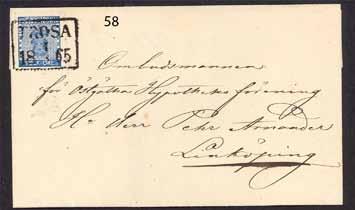 58
TROSA
1
18 65
Ombudsmannen
för Östgötha Hypotheks förening
Hr Herr Pehr Armander
Linköping